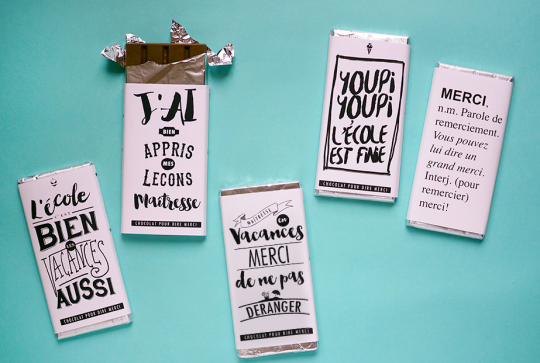 L'école
est
BIEN
LES
VACANCES
AUSSI
CHOCOLAT POUR DIRE MERCI
J'AI
BIEN
APPRIS
MES
LEÇONS
Maîtresse
CHOCOLAT POUR DIRE MERCI
MAÎTRESSE
en
Vacances
MERCI
de ne pas
DÉRANGER
CHOCOLAT POUR DIRE MERCI
YOUPi
YOUPi
L'ÉCOLE
EST FINIE
CHOCOLAT POUR DIRE MERCI
MERCI,
n.m. Parole de
remerciement.
Vous pouvez
lui dire un
grand merci.
Interj. (pour
remercier)
merci!